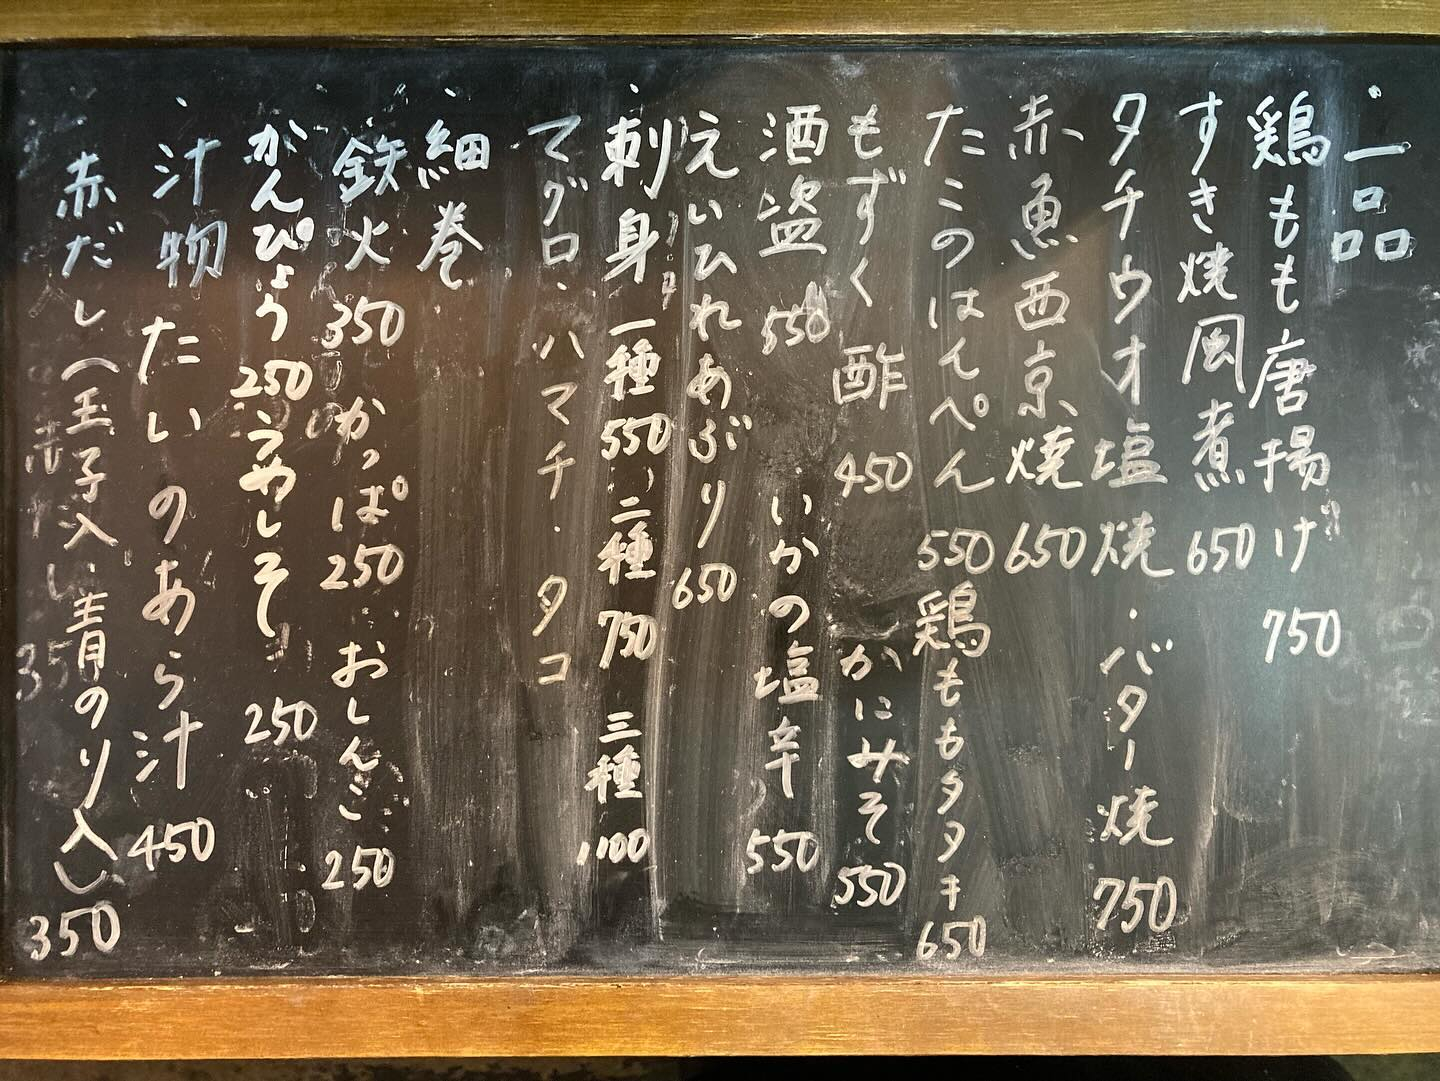 ・一品
鶏もも唐揚げ 750
すき焼風煮 650
タチウオ塩焼・バター焼 750
赤魚西京焼 650
たこのはんぺん 550 鶏ももタタキ 650
もずく酢 450 かにみそ 550
酒盗 550 いかの塩辛 550
えいひれあぶり 650
・刺身 一種 550 二種 750 三種 1100
マグロ・ハマチ・タコ
・細巻
鉄火 350 かっぱ 250 おしんこ 250
かんぴょう 250 うめしそ 250
・汁物 たいのあら汁 450
赤だし(玉子入り、青のり入り) 350